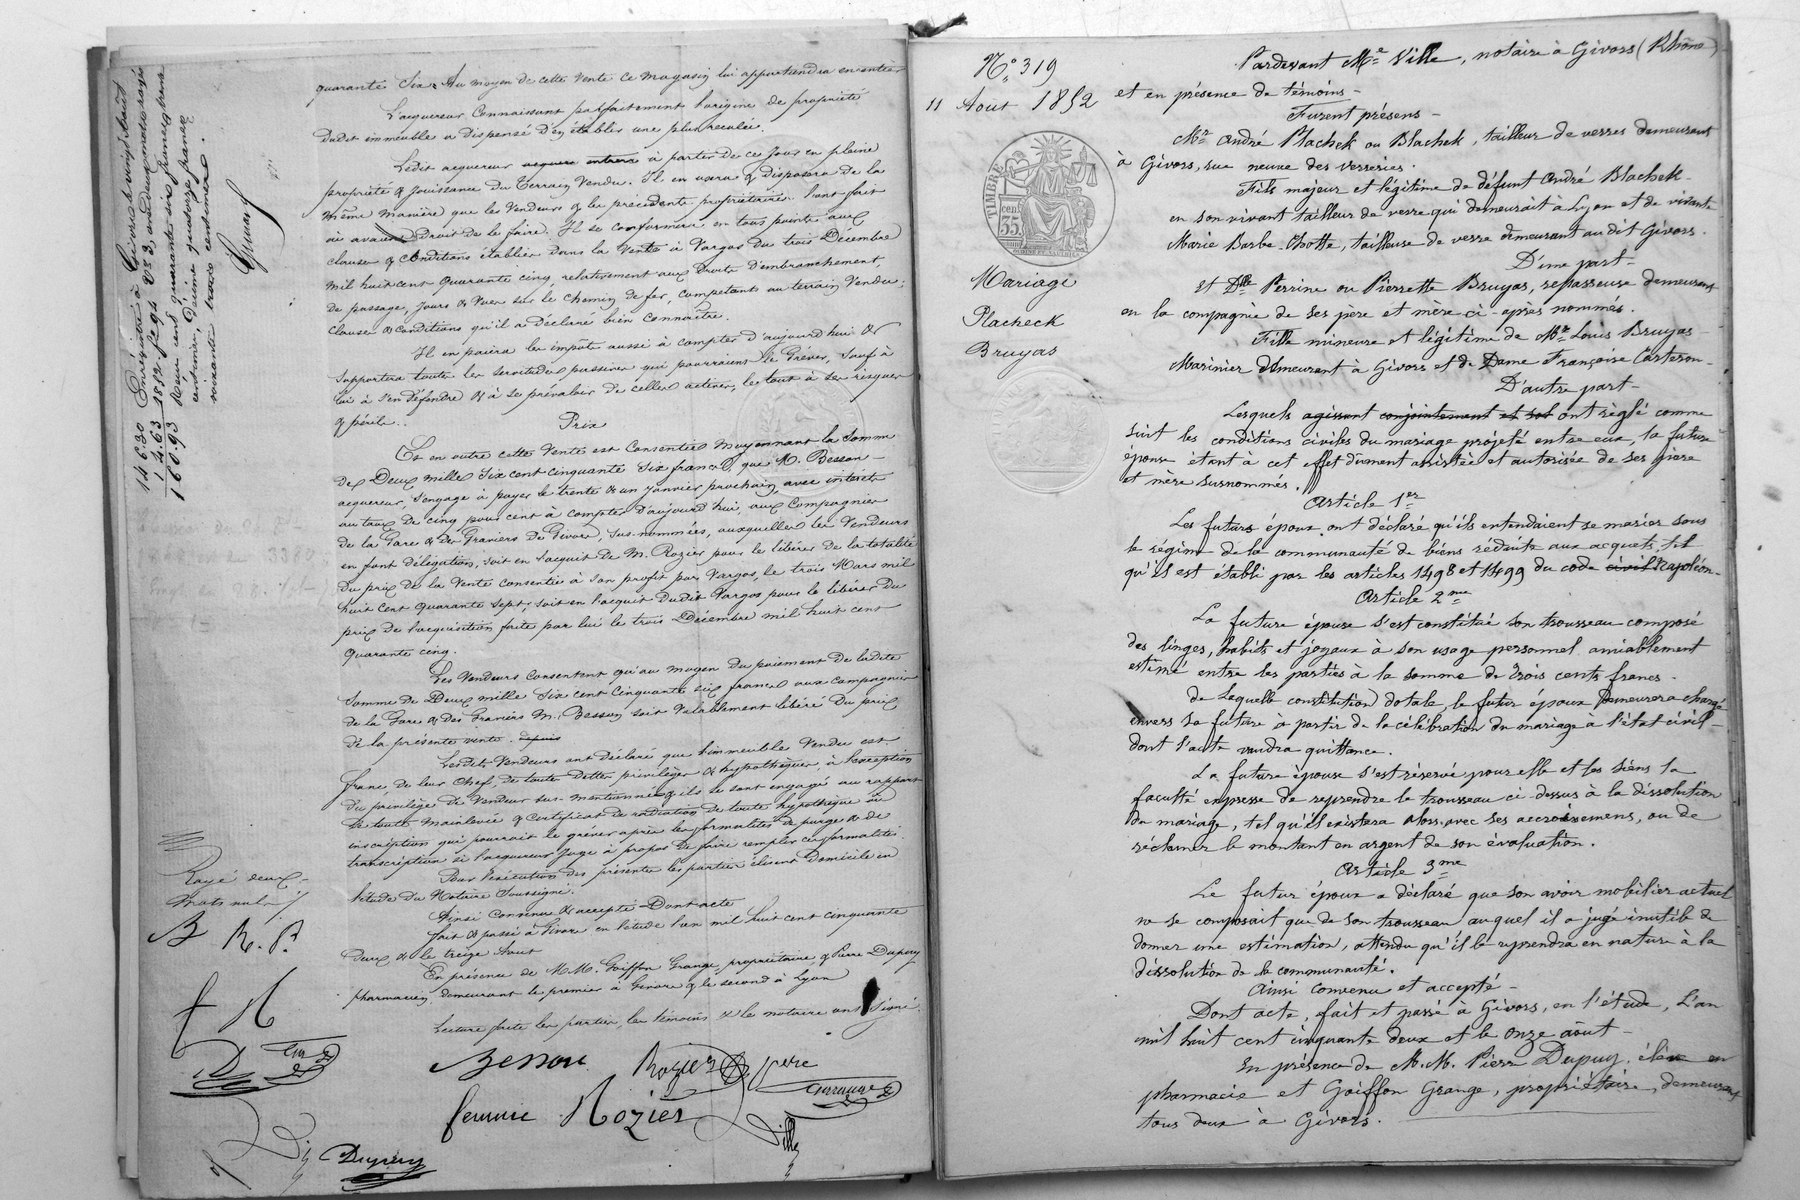 quarante six. Au moyen de cette vente ce magasin lui appartiendra en entier
L'acquereur connaissant parfaitement l'origine de propriété
dudit immeuble a dispensé d'en établir une plus reculée.
Ledit acquereur acquiere entrera à partir de ce jour en pleine
propriété & jouissance du terrain vendu. Il en usera & disposera de la
même manière que les vendeurs & les précédents propriétaires l'ont fait
où avaient droit de le faire. Il se conformera en tous points aux
clauses & conditions établies dans la vente à Vargos du trois Décembre
mil huit cent quarante cinq, relativement aux droits d'embranchement
de passage, jours & vues sur le chemin de fer, compétants au terrain vendu,
clauses & conditions qu'il a déclaré bien connaître.
Il en paiera les impôts aussi à compter d'aujourd'hui &
supportera toutes les servitudes passives qui pourraient le grever, sauf à
lui à s'en défendre & à se prévaloir de celles actives, le tout à ses risques
& périls.
Prix
Et en outre cette vente est consentie moyennant la somme
de Deux mille six cent cinquante six francs, que M. Besson
acquereur, s'engage à payer le trente & un janvier prochain, avec intérêts
au taux de cinq pour cent à compter d'aujourd'hui, aux Compagnies
de la Gare & des Graviers de Givors, sus-nommées, auxquelles les vendeurs
en font délégation, soit en l'acquit de M. Rozier pour le libérer de la totalité
du prix de la vente consentie à son profit par Vargos, le trois Mars mil
huit cent quarante sept, soit en l'acquit dudit Vargos pour le libérer du
prix de l'acquisition faite par lui le trois Décembre mil huit cent
quarante cinq.
Les vendeurs consentent qu'au moyen du paiement de ladite
somme de Deux mille six cent cinquante six francs aux compagnies
de la Gare & des Graviers M. Besson soit valablement libéré du prix
de la présente vente. depuis
Lesdits vendeurs ont déclaré que l'immeuble vendu est
franc, de leur chef, de toute dettes privilèges & hypothèques, à l'exception
du privilège de vendeur sus-mentionné & ils se sont engagé au rapport
de toute mainlevée & certificat de radiation de toute hypothèque ou
inscription qui pourrait le grever après les formalités de purge & de
transcription si l'acquereur juge à propos de faire remplir ces formalités.
Pour l'exécution des présentes les parties élisent domicile en
l'étude du Notaire soussigné.
Ainsi convenu & accepté - Dont acte
fait & passé à Givors en l'étude l'an mil huit cent cinquante
deux & le treize Aout
En présence de M.M. Goiffon Grange, propriétaire & Pierre Dupuy
pharmacien, demeurant le premier à Givors & le second à Lyon
Lecture faite les parties, les témoins & le notaire ont signé.
Besson Rozier père
femme Rozier Grange
Ville
Dupuy
Rayé deux
mots nuls
B R. P.
f R
D
Enregistré à Givors le vingt Août
1852 folio
Reçu cent quarante six francs trente
centimes, Dixième quatorze francs
soixante trois centimes.
146.30
14.63
160.93
N° 319
11 Aout 1852
TIMBRE
35
Mariage
Placheck
Bruyas
Pardevant Me Ville, notaire à Givors (Rhône)
et en présence de témoins -
Furent présens -
Mr André Plachek ou Blachek, tailleur de verres demeurant
à Givors, rue neuve des verreries.
Fils majeur et légitime de défunt André Blachek
en son vivant tailleur de verre qui demeurait à Lyon et de vivante
Marie Barbe Chotte, tailleuse de verre demeurant au dit Givors.
D'une part -
Et Dlle Perrine ou Pierrette Bruyas, repasseuse demeurant
en la compagnie de ses père et mère ci-après nommés.
Fille mineure et légitime de Mr Louis Bruyas
Marinier demeurant à Givors et de Dame Françoise Carteron
D'autre part -
Lesquels agissant conjointement et sol ont réglé comme
suit les conditions civiles du mariage projeté entre eux, la future
épouse étant à cet effet dûment assistée et autorisée de ses père
et mère susnommés.
Article 1er
Les futurs époux ont déclaré qu'ils entendaient se marier sous
le régime de la communauté de biens réduite aux acquets, tel
qu'il est établi par les articles 1498 et 1499 du code civil Napoléon.
Article 2me
La future épouse s'est constitué son trousseau composé
des linges, habits et joyaux à son usage personnel amiablement
estimé entre les parties à la somme de trois cents francs.
de Laquelle constitution dotale, le futur époux demeurera chargé
envers sa future à partir de la célébration du mariage à l'état civil
dont l'acte vaudra quittance.
La future épouse s'est réservé pour elle et les siens la
faculté expresse de reprendre le trousseau ci-dessus à la dissolution
du mariage, tel qu'il existera alors avec ses accroissemens, ou de
réclamer le montant en argent de son évaluation.
Article 3me
Le futur époux a déclaré que son avoir mobilier actuel
ne se composait que de son trousseau auquel il a jugé inutile de
donner une estimation, attendu qu'il le reprendra en nature à la
dissolution de la communauté.
Ainsi convenu et accepté -
Dont acte, fait et passé à Givors, en l'étude, L'an
mil huit cent cinquante deux et le onze août -
En présence de M.M. Pierre Dupuy, élève en
pharmacie et Goiffon Grange, propriétaire, demeurant
tous deux à Givors.